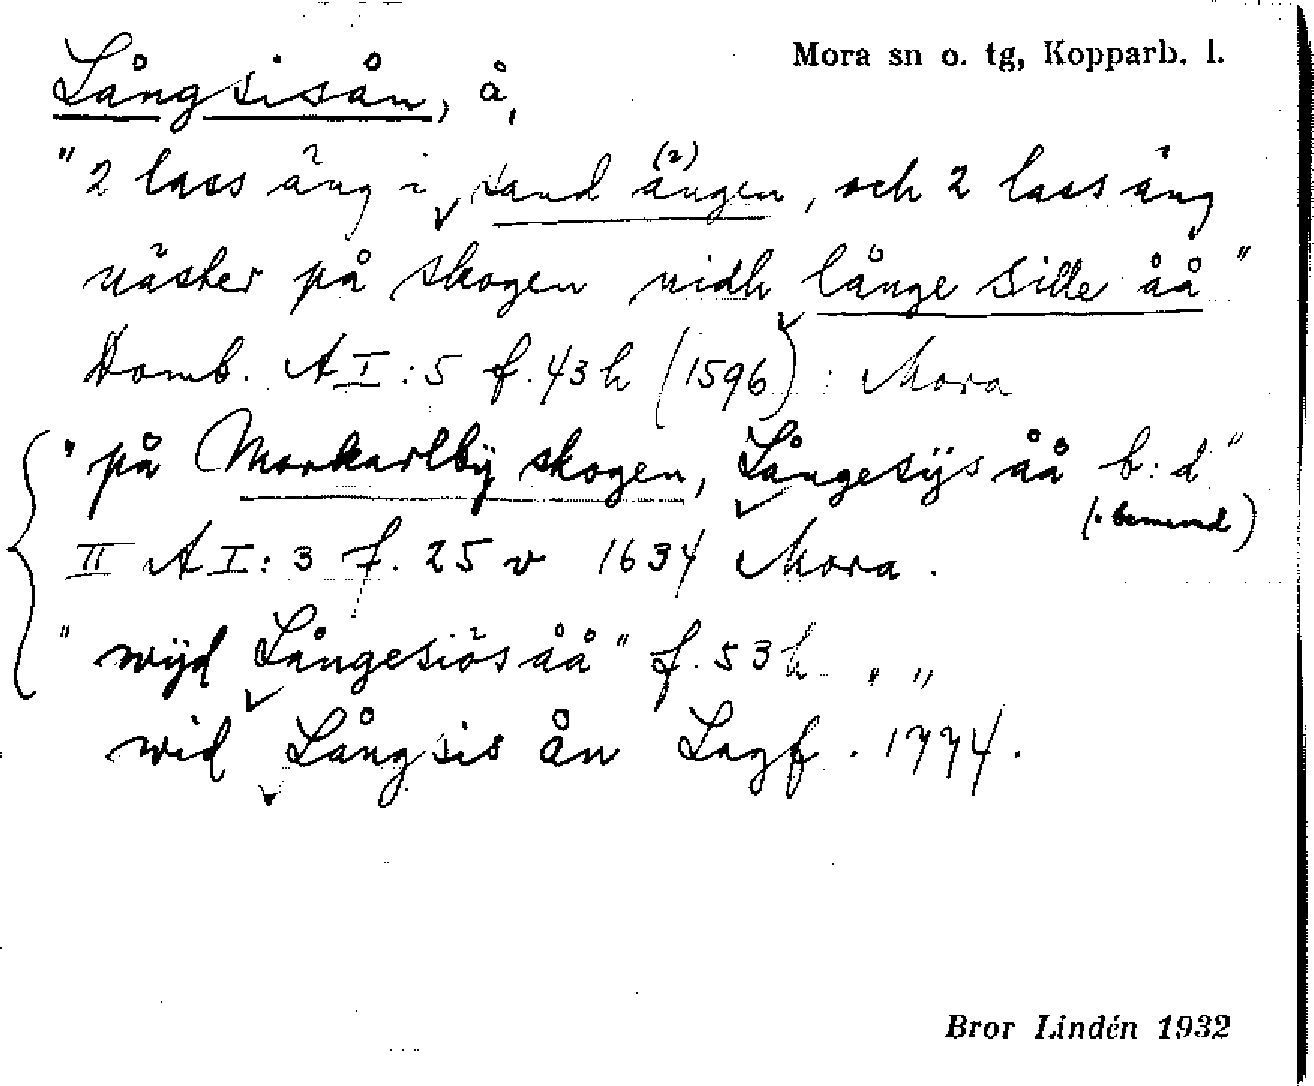 Mora sn o. tg, Kopparb. l.
Långsisån, å,
"2 lass äng i sand ängen, och 2 lass äng
(2)
näster på skogen vidh långe Sille åå"
Domb. A I:5 f. 43 h (1596): Mora
"på Morkarlbÿ skogen, Långesijs åå b:d"
(: bemend)
II A I:3 f. 25 v 1634 Mora.
"wijd Långesiösåå" f. 53 h " "
wid Långsis ån Lagf. 1774.
Bror Lindén 1932